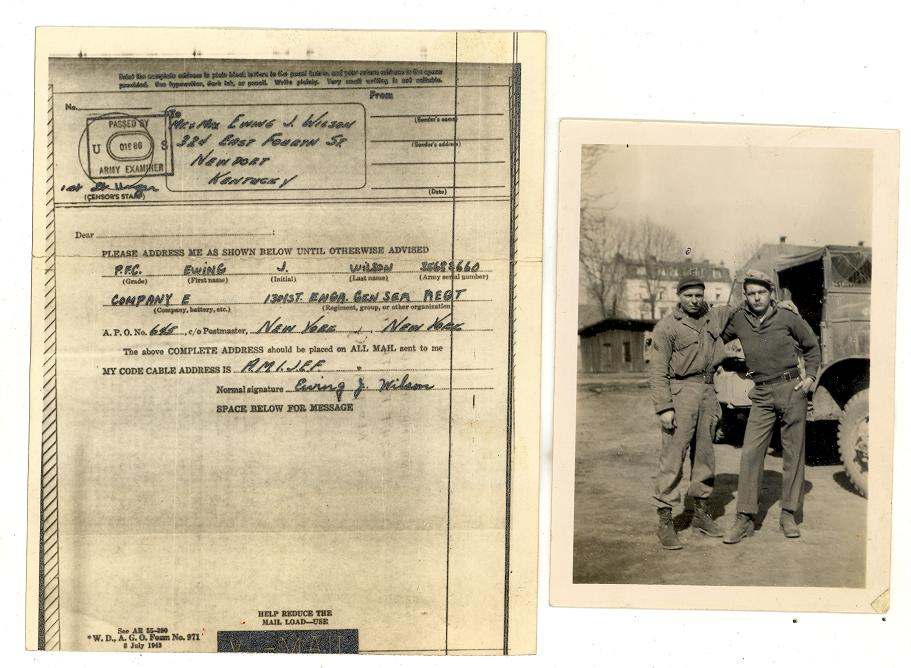 Print the complete address in plain block letters in the panel below, and your return address in the space
provided. Use typewriter, dark ink, or pencil. Write plainly. Very small writing is not suitable.
No.
To
From
PASSED BY
U S
ARMY EXAMINER
(CENSOR'S STAMP)
EWING J. WILSON
324 EAST FOURTH ST.
NEWPORT
KENTUCKY
(Sender's name)
(Sender's address)
(Date)
Dear
PLEASE ADDRESS ME AS SHOWN BELOW UNTIL OTHERWISE ADVISED
P.F.C. EWING J. WILSON
(Grade) (First name) (Initial) (Last name) (Army serial number)
COMPANY E 1301ST. ENGR. GEN SER REGT
(Company, battery, etc.) (Regiment, group, or other organization)
A. P. O. No. , c/o Postmaster, NEW YORK , NEW YORK
The above COMPLETE ADDRESS should be placed on ALL MAIL sent to me
MY CODE CABLE ADDRESS IS
Normal signature Ewing J. Wilson
SPACE BELOW FOR MESSAGE
See AR
W. D., A. G. O. Form No. 971
2 July 1943
HELP REDUCE THE
MAIL LOAD—USE
V-MAIL